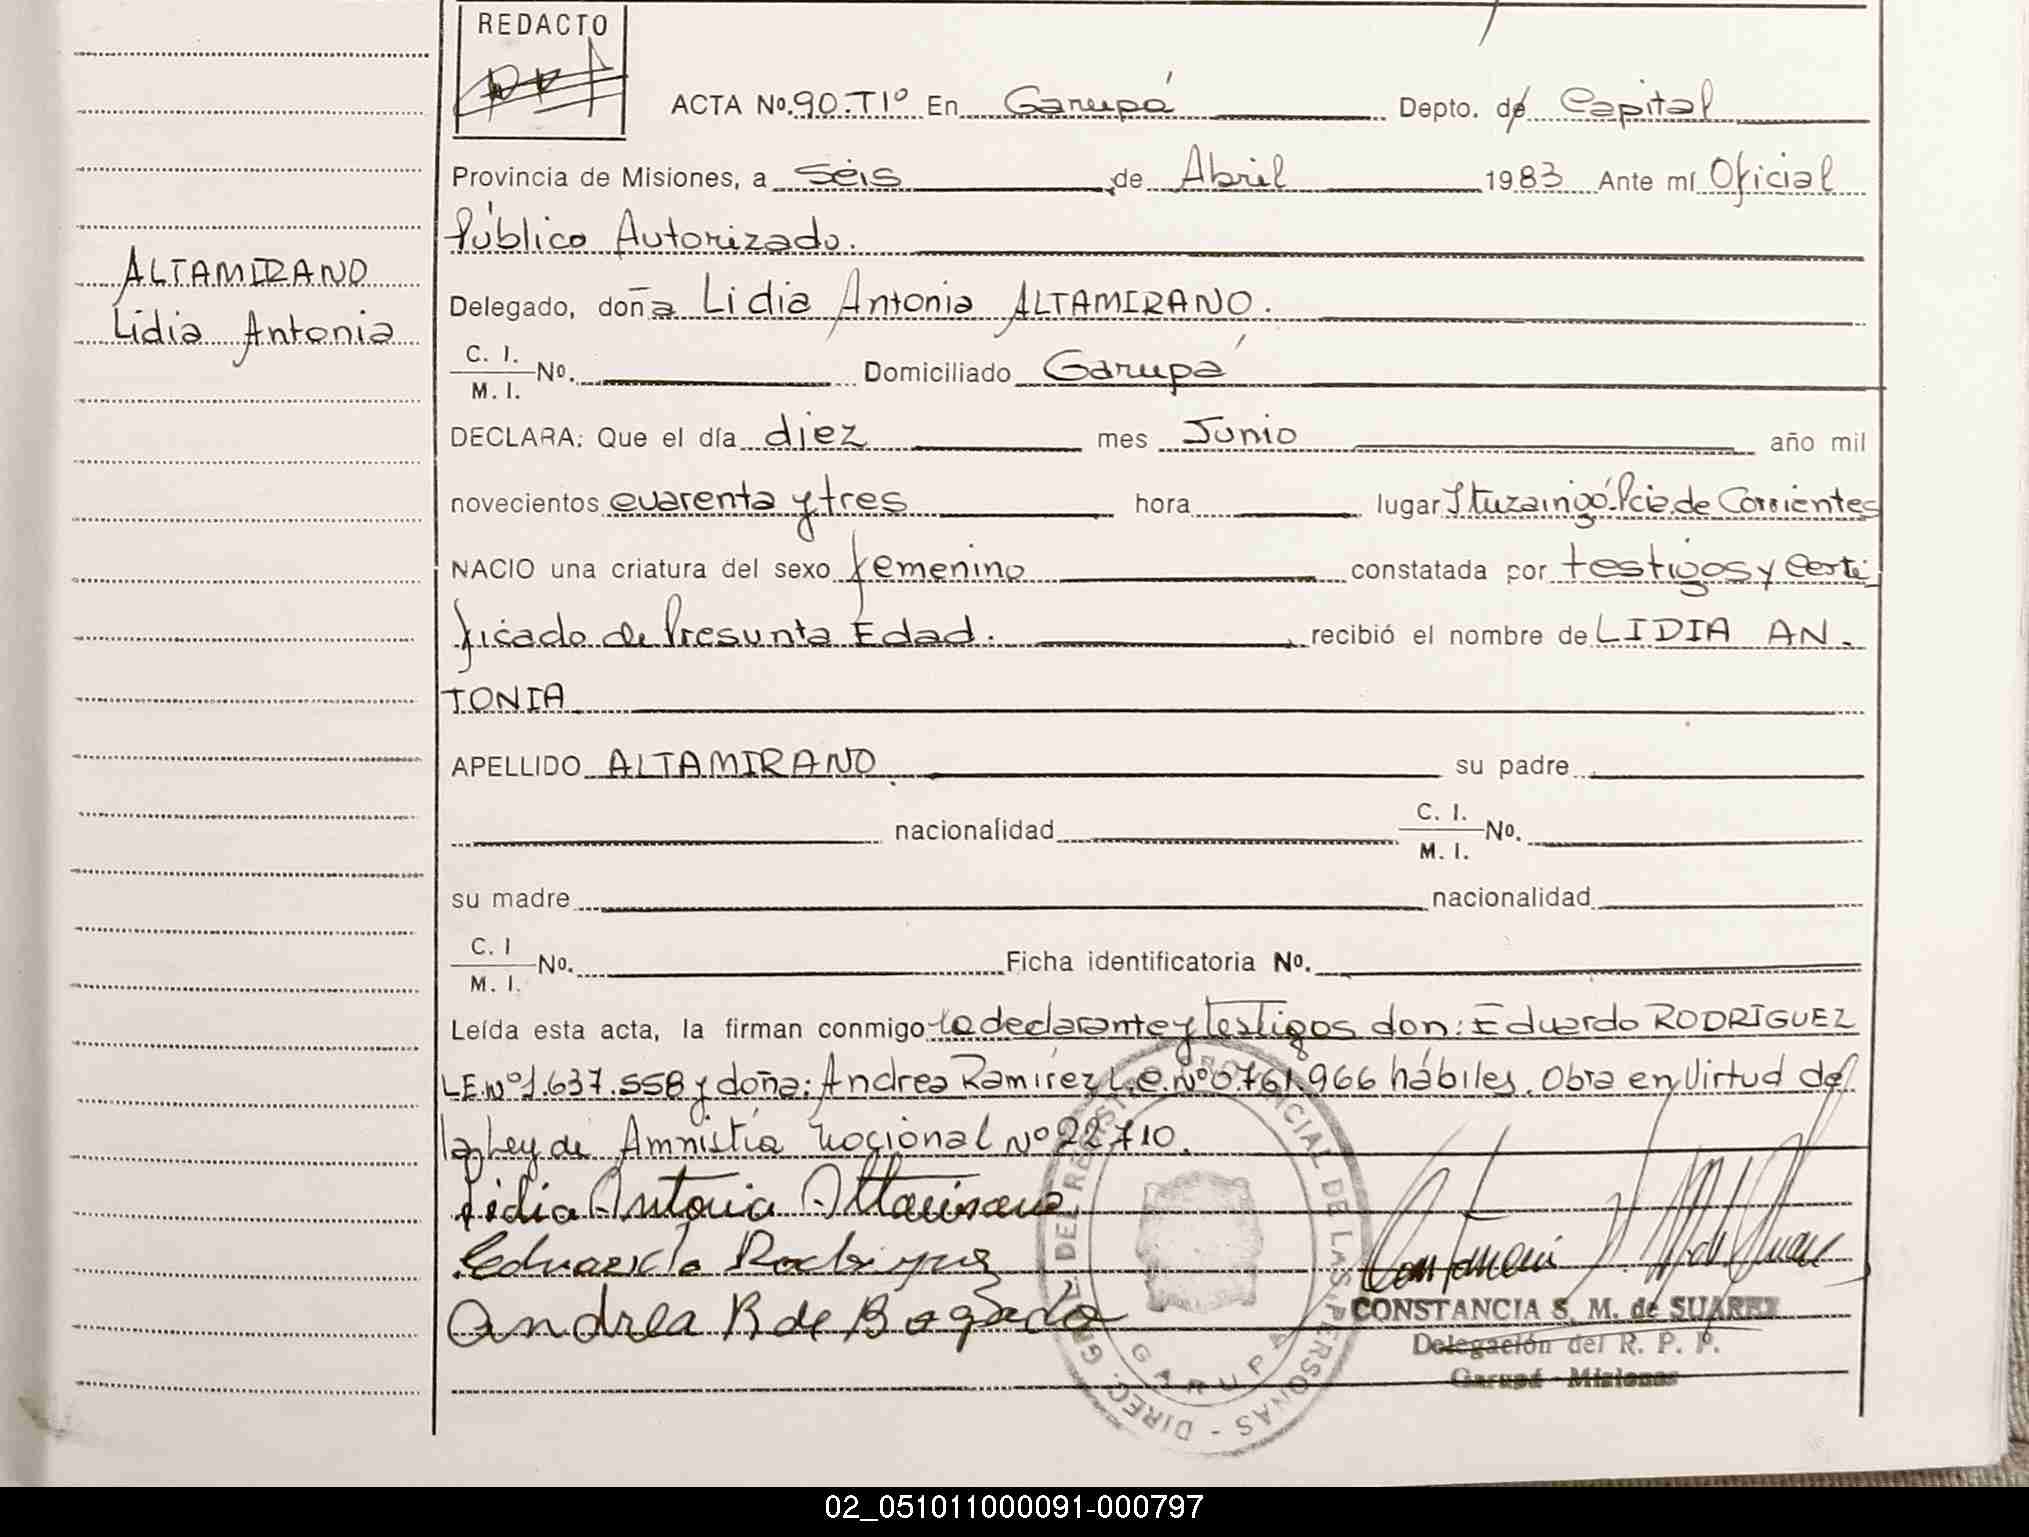 REDACTO
ACTA No. 90.TIº En Garupá Depto. de Capital
Provincia de Misiones, a seis de Abril 1983 Ante mí Oficial
Público Autorizado.
ALTAMIRANO
Lidia Antonia
Delegado, doña Lidia Antonia ALTAMIRANO.
C. I.
M. I. No. Domiciliado Garupá
DECLARA: Que el día diez mes Junio año mil
novecientos cuarenta y tres hora lugar Ituzaingó-Pcia. de Corrientes
NACIO una criatura del sexo femenino constatada por testigos y Certi
ficado de Presunta Edad. recibió el nombre de LIDIA AN-
TONIA
APELLIDO ALTAMIRANO. su padre
nacionalidad C. I.
M. I. No.
su madre nacionalidad
C. I
M. I. No. Ficha identificatoria No.
Leída esta acta, la firman conmigo la declarante y testigos don: Eduardo RODRÍGUEZ
L.E. Nº 1.637.558 y doña: Andrea Ramírez L.C. Nº 0.761.966 hábiles. Obra en Virtud de
la Ley de Amnistía Nacional Nº 22.710.
Lidia Antonia Altamirano
Eduardo Rodriguez
Andrea R de Bogado
DIREC. GRAL. DEL REGISTRO PROVINCIAL DE LAS PERSONAS -
GARUPA
CONSTANCIA S. M. de SUAREZ
Delegación del R. P. P.
Garupá - Misiones
02_051011000091-000797